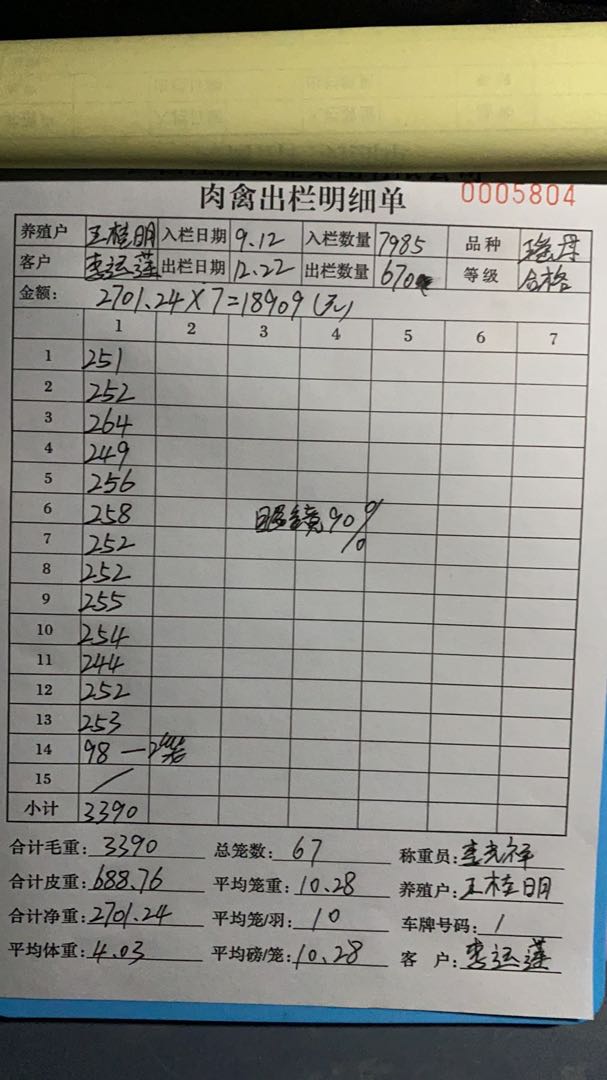 肉禽出栏明细单 0005804
养殖户 王桂明 入栏日期 9.12 入栏数量 7985 品种
客户 李运莲 出栏日期 12.22 出栏数量 670 等级 合格
金额: 2701.24×7=18909(元)
1 2 3 4 5 6 7
1 251
2 252
3 264
4 249
5 256
6 258 眼镜90%
7 252
8 252
9 255
10 254
11 244
12 252
13 253
14 98 — 2笼
15 /
小计 3390
合计毛重: 3390 总笼数: 67 称重员: 李光祥
合计皮重: 688.76 平均笼重: 10.28 养殖户: 王桂明
合计净重: 2701.24 平均笼/羽: 10 车牌号码: /
平均体重: 4.03 平均磅/笼: 10.28 客 户: 李运莲